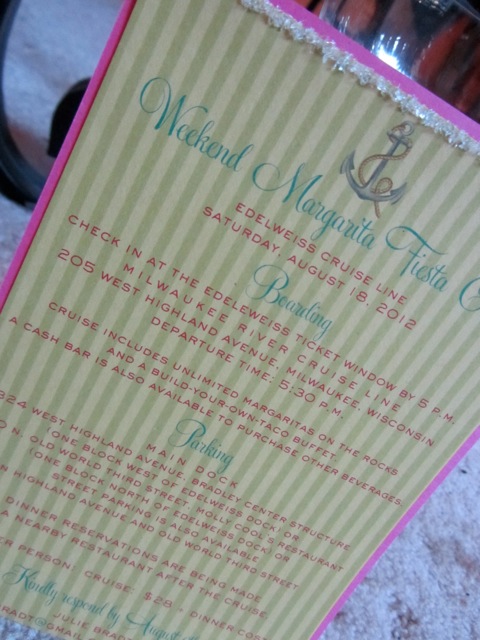 Weekend Margarita Fiesta
EDELWEISS CRUISE LINE
SATURDAY, AUGUST 18, 2012
Boarding
CHECK IN AT THE EDELEWEISS TICKET WINDOW BY 5 P.M.
MILWAUKEE RIVER CRUISE LINE
205 WEST HIGHLAND AVENUE, MILWAUKEE, WISCONSIN
DEPARTURE TIME: 5:30 P.M.
CRUISE INCLUDES UNLIMITED MARGARITAS ON THE ROCKS
AND A BUILD-YOUR-OWN-TACO BUFFET.
A CASH BAR IS ALSO AVAILABLE TO PURCHASE OTHER BEVERAGES.
Parking
MAIN DOCK
324 WEST HIGHLAND AVENUE, BRADLEY CENTER STRUCTURE
(ONE BLOCK WEST OF EDELWEISS DOCK) OR
N. OLD WORLD THIRD STREET, MOLLY COOL'S RESTAURANT
(ONE BLOCK NORTH OF EDELWEISS DOCK) OR
STREET PARKING IS ALSO AVAILABLE
HIGHLAND AVENUE AND OLD WORLD THIRD STREET
DINNER RESERVATIONS ARE BEING MADE
A NEARBY RESTAURANT AFTER THE CRUISE
PERSON: CRUISE: $28 • DINNER COST
Kindly respond by August
JULIE
@GMAIL